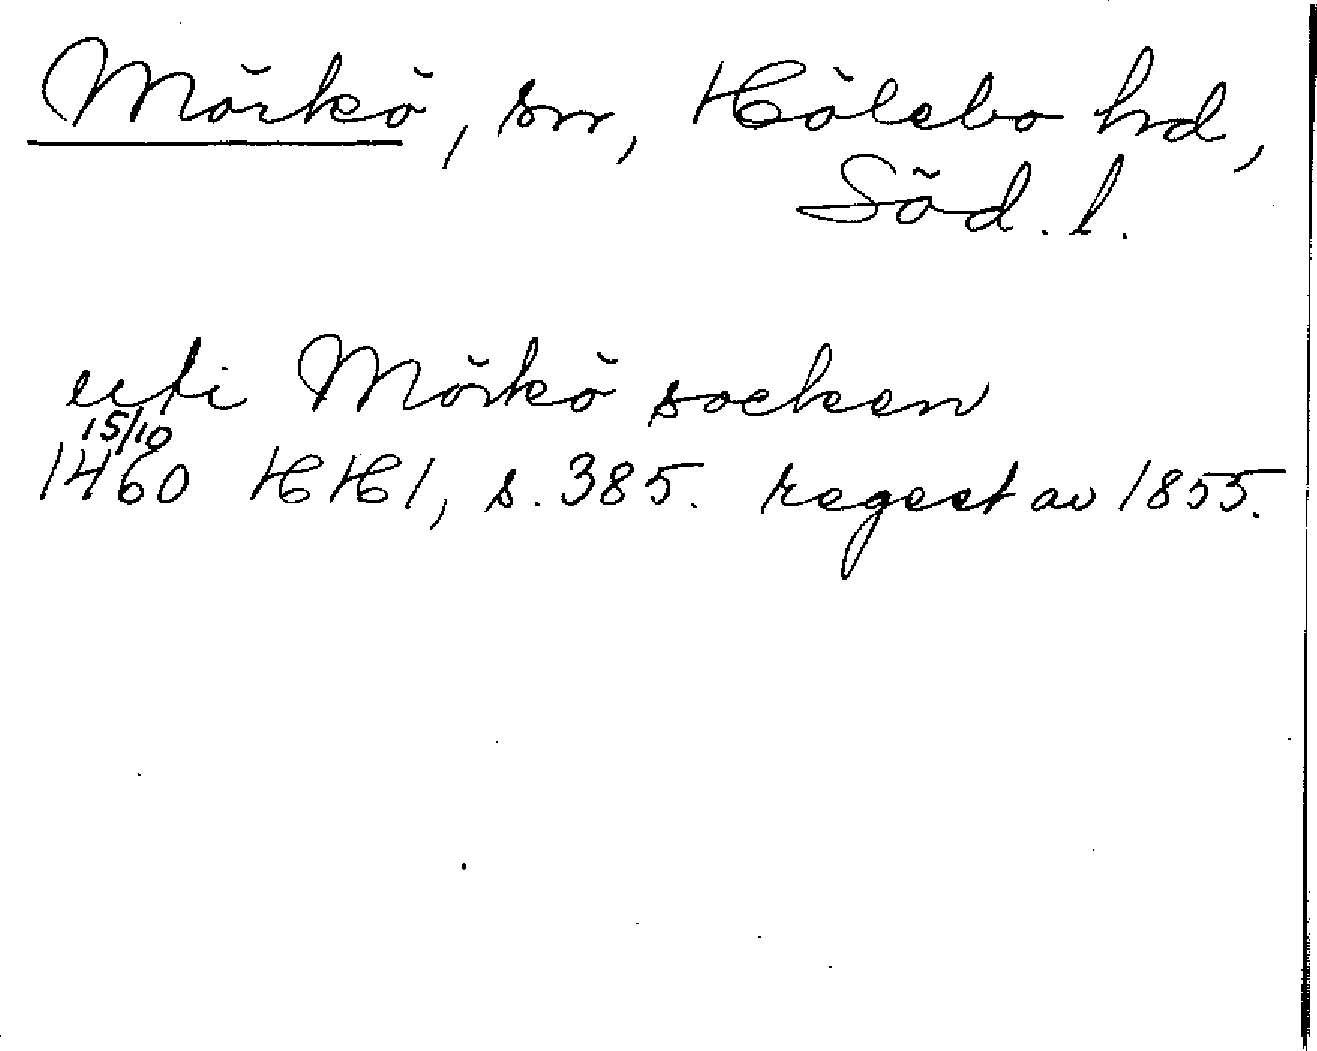 Mörkö, sn, Hölebo hd,
Söd. l.
uti Mörkö socken
15/10
1460 HH 1, s. 385. regest av 1855.